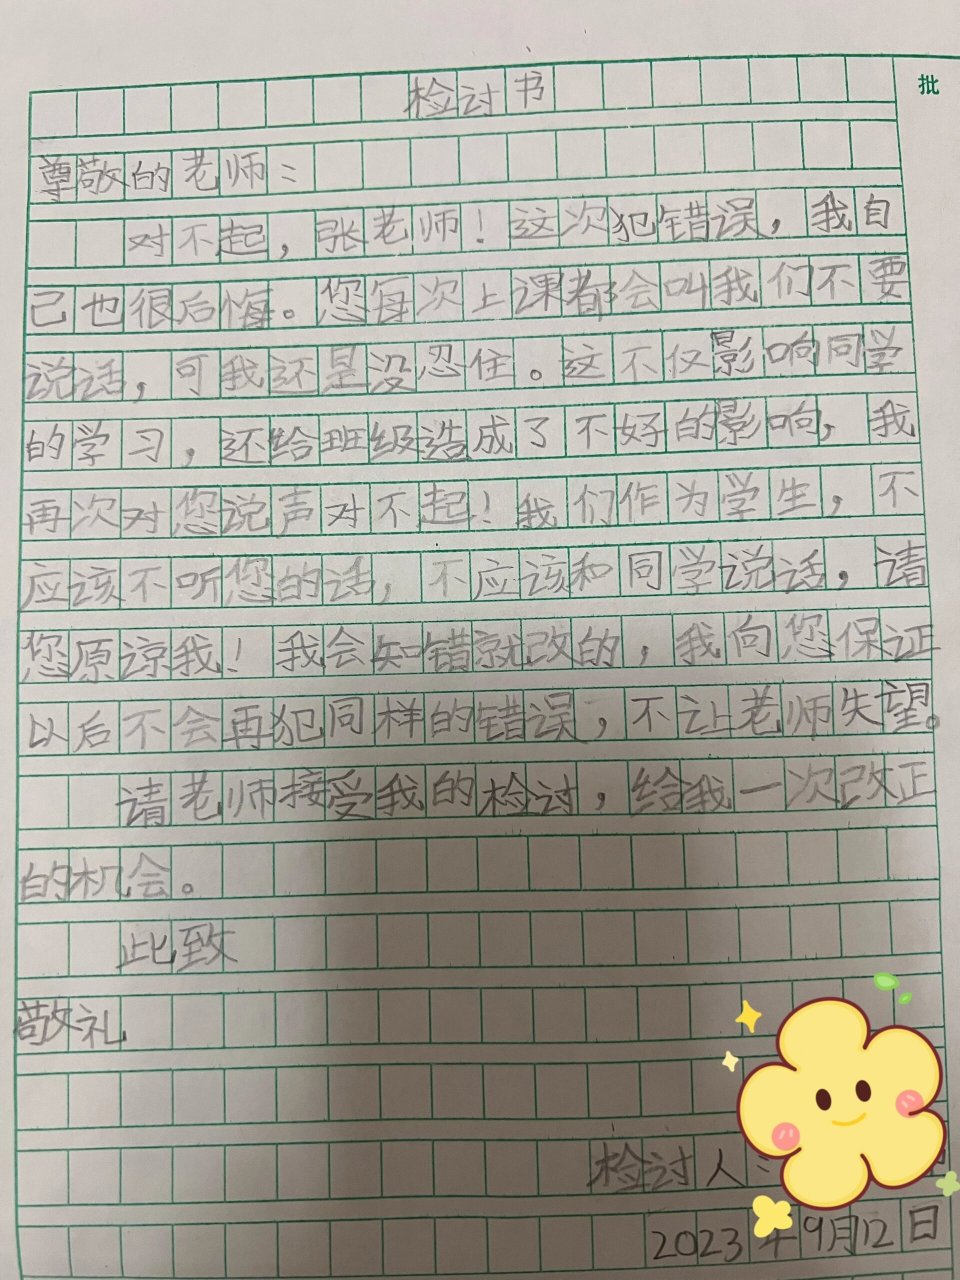 检讨书
批
尊敬的老师：
对不起，张老师！这次犯错误，我自
己也很后悔。您每次上课都会叫我们不要
说话，可我还是没忍住。这不仅影响同学
的学习，还给班级造成了不好的影响，我
再次对您说声对不起！我们作为学生，不
应该不听您的话，不应该和同学说话，请
您原谅我！我会知错就改的，我向您保证
以后不会再犯同样的错误，不让老师失望。
请老师接受我的检讨，给我一次改正
的机会。
此致
敬礼
检讨人：
2023年9月12日